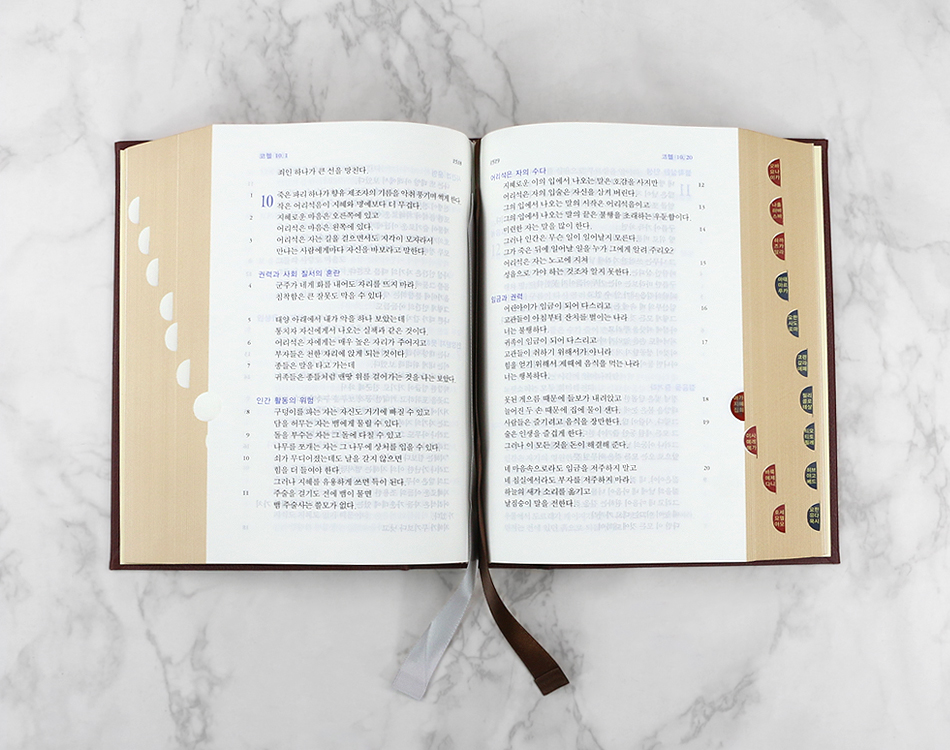 코헬 10,1
죄인 하나가 큰 선을 망친다.
10 죽은 파리 하나가 향유 제조자의 기름을 악취 풍기며 썩게 한다.
작은 어리석음이 지혜와 명예보다 더 무겁다.
2 지혜로운 마음은 오른쪽에 있고
어리석은 마음은 왼쪽에 있다.
3 어리석은 자는 길을 걸으면서도 지각이 모자라서
만나는 사람에게마다 자신을 바보라고 말한다.
권력과 사회 질서의 혼란
4 군주가 네게 화를 내어도 자리를 뜨지 마라.
침착함은 큰 잘못도 막을 수 있다.
5 태양 아래에서 내가 악을 하나 보았는데
통치자 자신에게서 나오는 실책과 같은 것이다.
6 어리석은 자에게는 매우 높은 자리가 주어지고
부자들은 천한 자리에 앉게 되는 것이다.
7 종들은 말을 타고 가는데
귀족들은 종들처럼 맨땅 위를 걸어가는 것을 나는 보았다.
인간 활동의 위험
8 구덩이를 파는 자는 자신도 거기에 빠질 수 있고
담을 허무는 자는 뱀에게 물릴 수 있다.
9 돌을 부수는 자는 그 돌에 다칠 수 있고
나무를 쪼개는 자는 그 나무에 상처를 입을 수 있다.
10 쇠가 무디어졌는데도 날을 갈지 않으면
힘을 더 들여야 한다.
그러나 지혜를 유용하게 쓰면 득이 된다.
11 주술을 걸기도 전에 뱀이 물면
뱀 주술사는 쓸모가 없다.
코헬 10,20
어리석은 자의 수다
12 지혜로운 이의 입에서 나오는 말은 호감을 사지만
어리석은 자의 입술은 자신을 삼켜 버린다.
그의 입에서 나오는 말의 시작은 어리석음이고
그의 입에서 나오는 말의 끝은 불행을 초래하는 우둔함이다.
미련한 자는 말을 많이 한다.
그러나 인간은 무슨 일이 일어날지 모른다.
그가 죽은 뒤에 일어날 일을 누가 그에게 알려 주리오?
15 어리석은 자는 노고에 지쳐
성읍으로 가야 하는 것조차 알지 못한다.
임금과 권력
16 어린아이가 임금이 되어 다스리고
고관들이 아침부터 잔치를 벌이는 나라
너는 불행하다.
17 귀족이 임금이 되어 다스리고
고관들이 취하기 위해서가 아니라
힘을 얻기 위해서 제때에 음식을 먹는 나라
너는 행복하다.
18 못된 게으름 때문에 들보가 내려앉고
늘어진 두 손 때문에 집에 물이 샌다.
19 사람들은 즐기려고 음식을 장만한다.
술은 인생을 즐겁게 한다.
그러나 이 모든 것을 돈이 해결해 준다.
20 네 마음속으로라도 임금을 저주하지 말고
네 침실에서라도 부자를 저주하지 마라.
하늘의 새가 소리를 옮기고
날짐승이 말을 전한다.